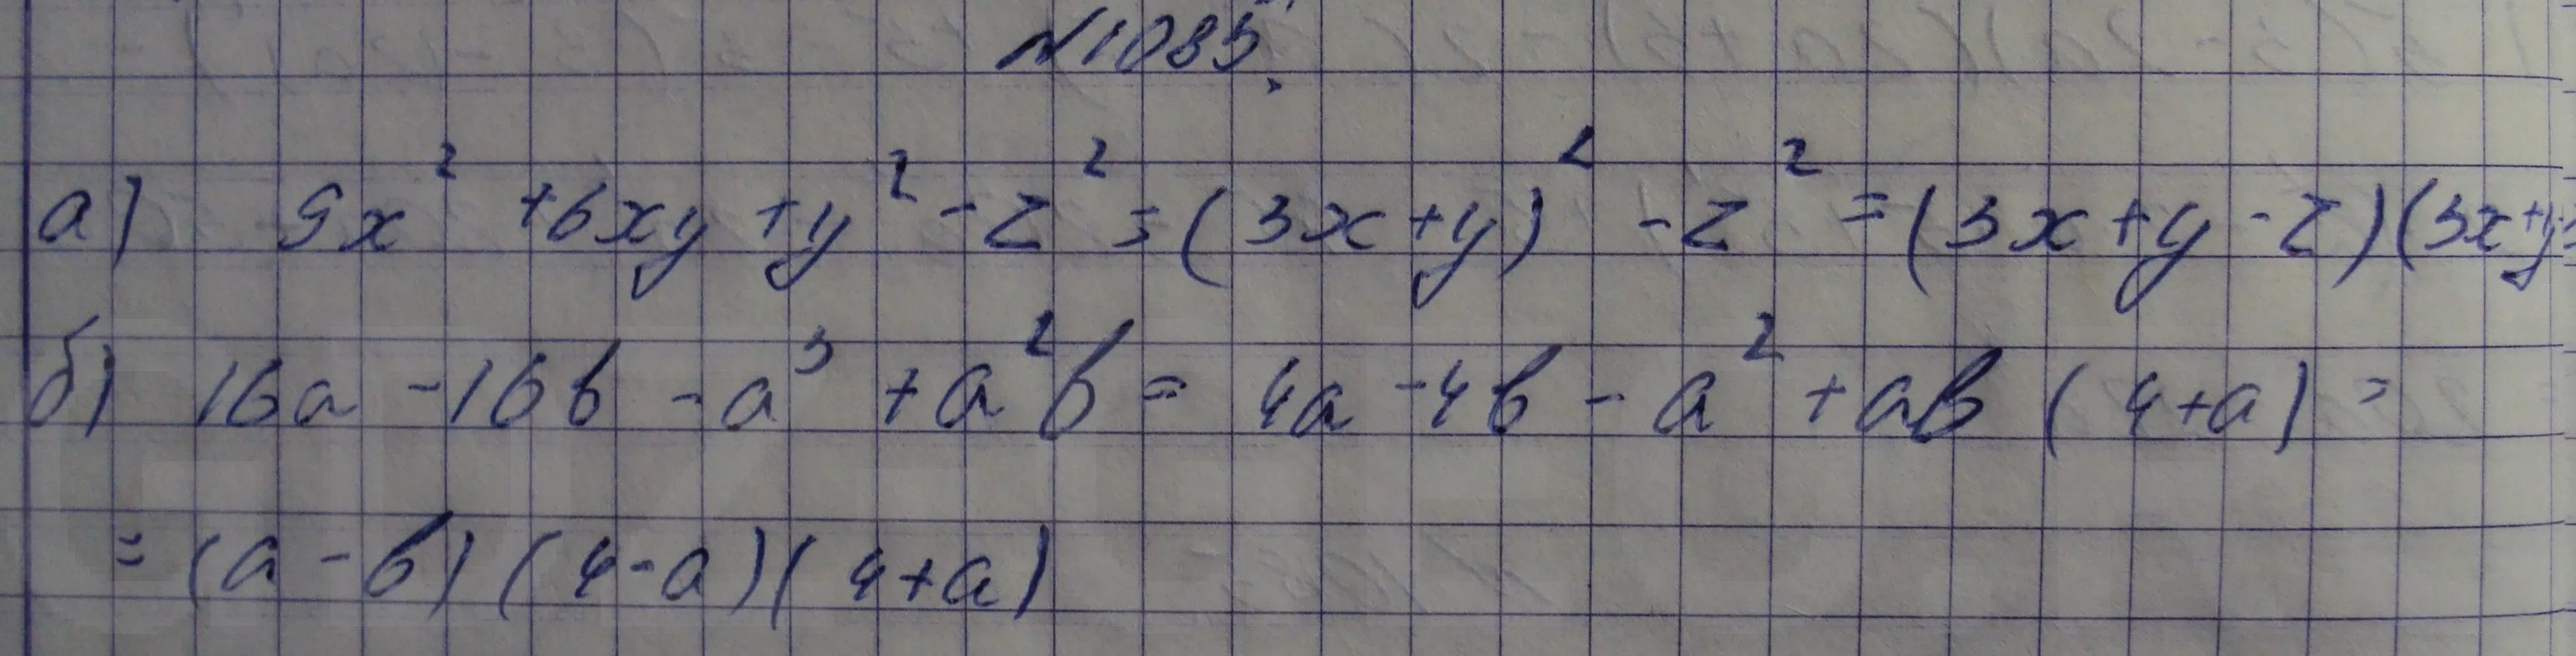 №1085.
а) 9x² + 6xy + y² - z² = (3x + y)² - z² = (3x + y - z)(3x + y
б) 16a - 16b - a³ + a²b = 4a - 4b - a² + ab (4 + a) =
= (a - b)(4 - a)(4 + a)